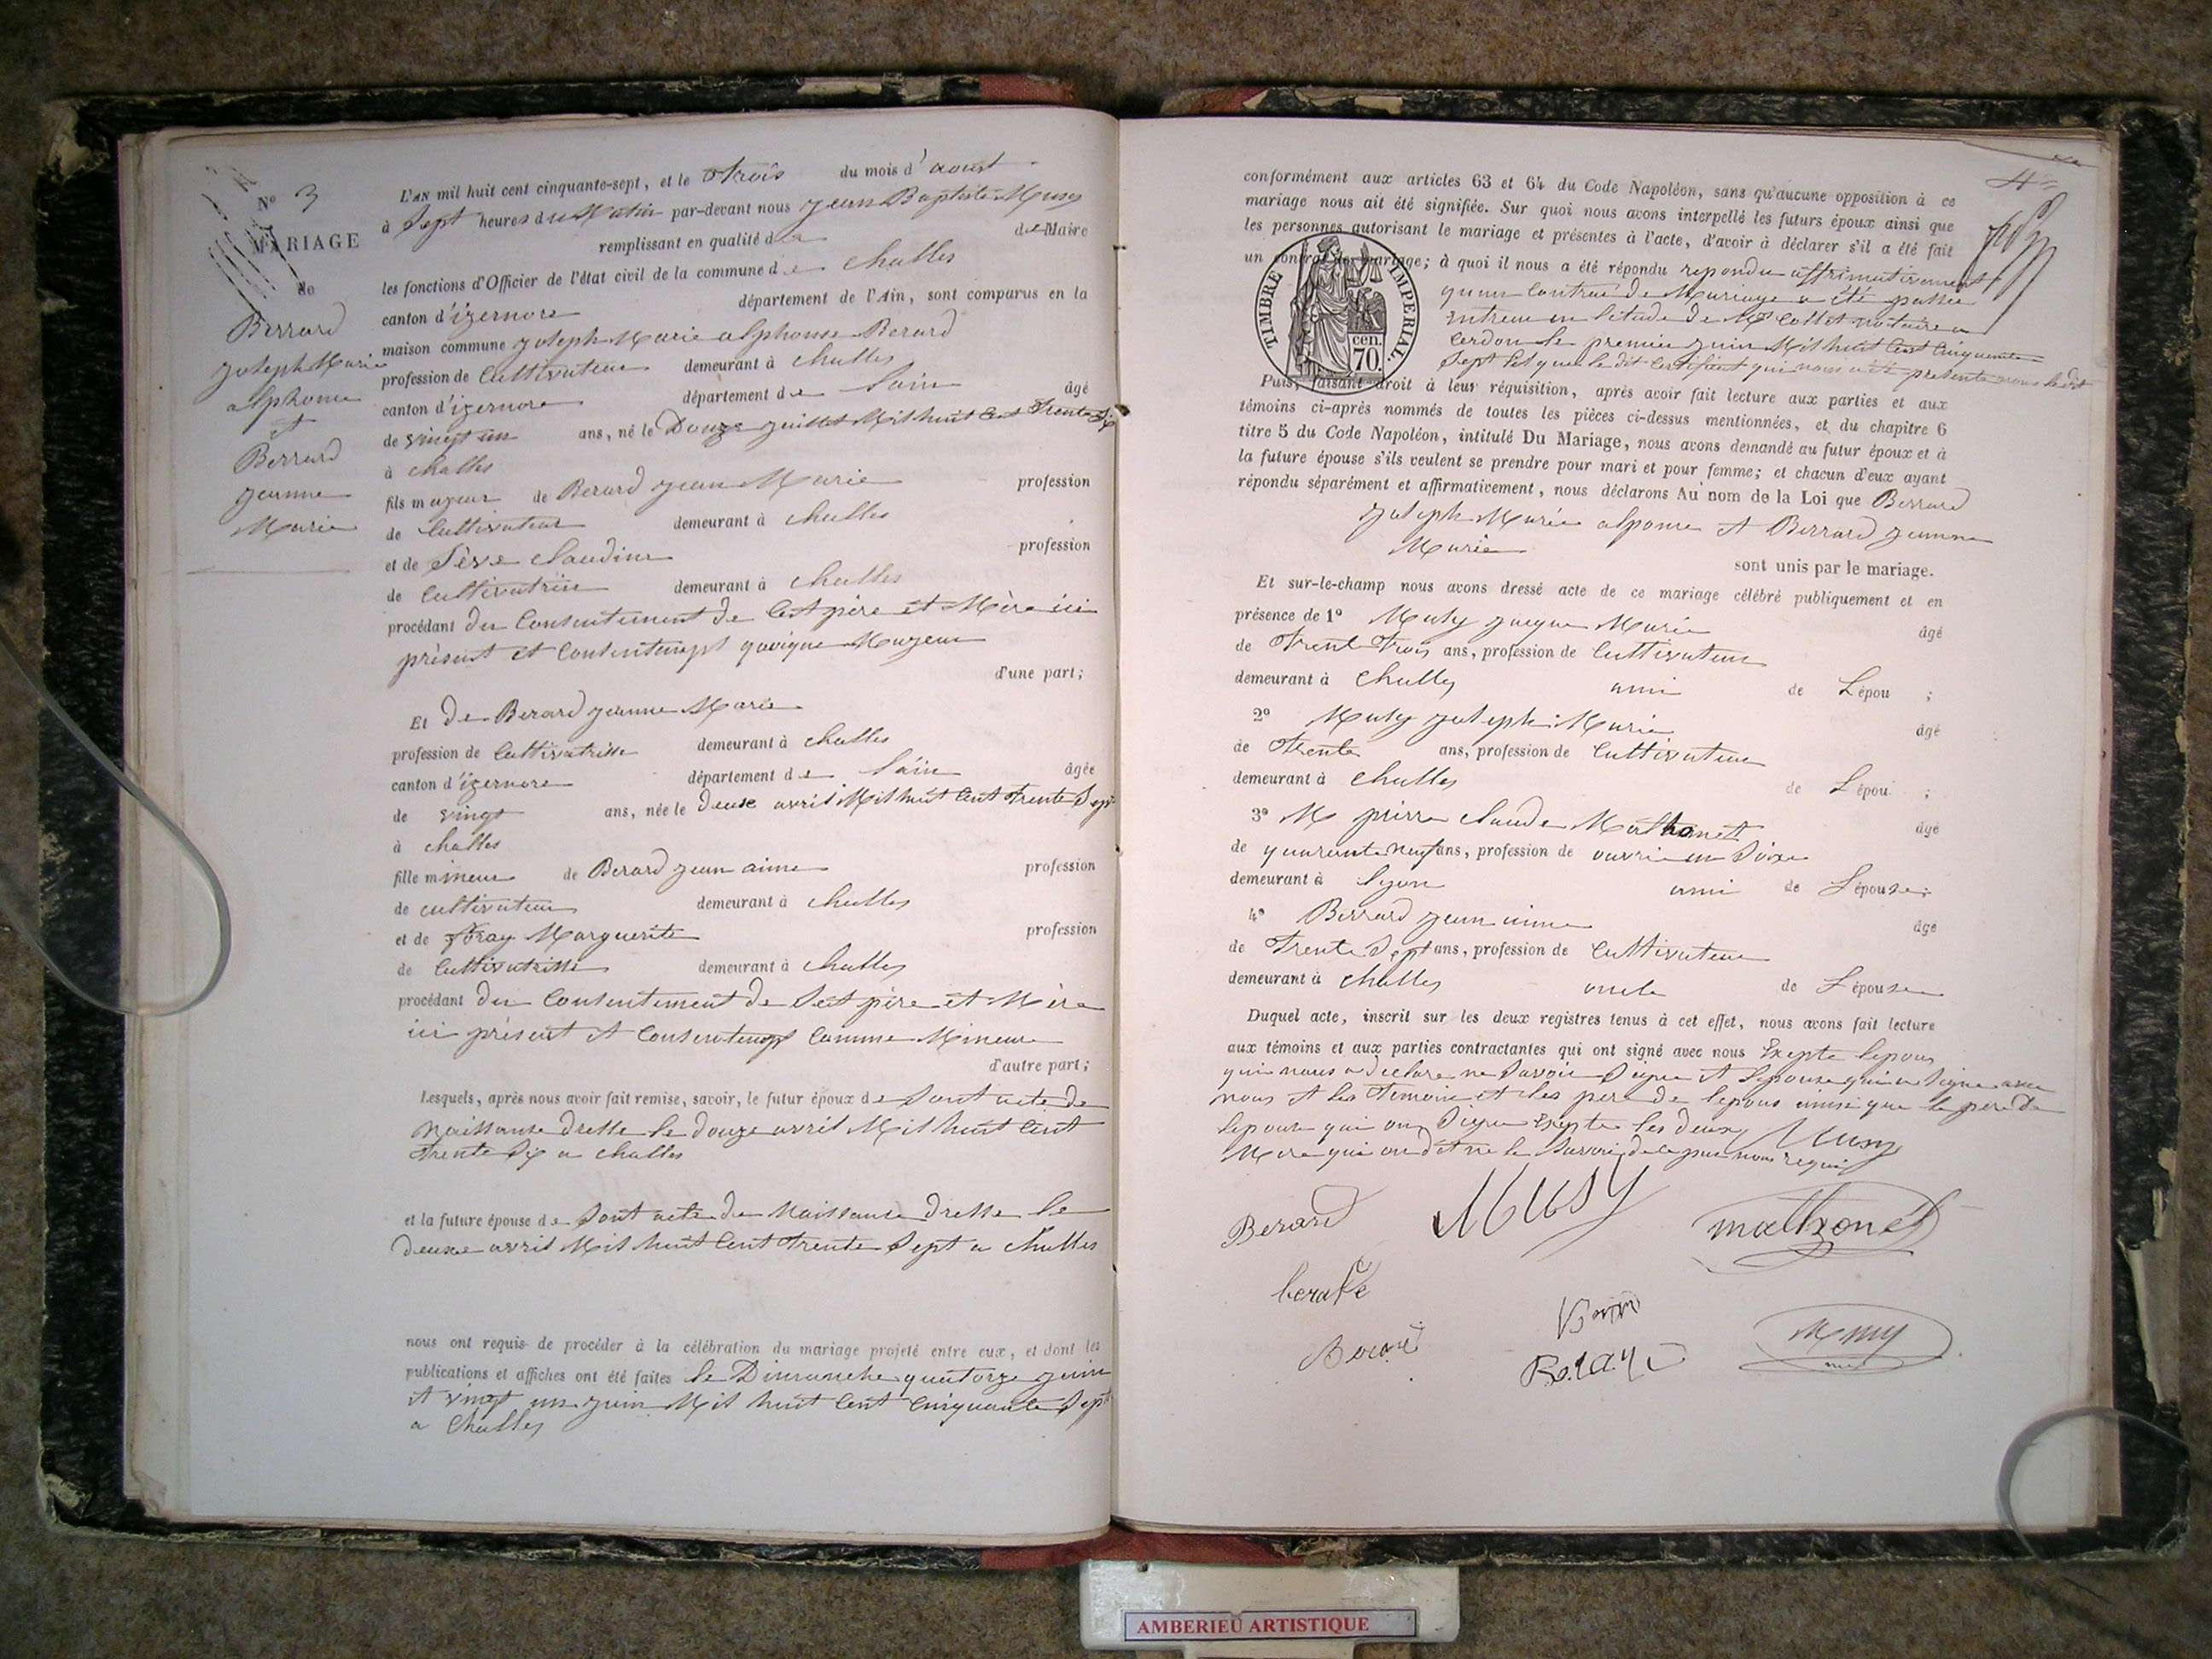 Nº 3
MARIAGE
de
Berrard
joseph Marie
alphonse
et
Berrard
jeanne
Marie
L'AN mil huit cent cinquante-sept, et le trois du mois d'aoust
à Sept heures du Matin par-devant nous jean Baptiste Musy
remplissant en qualité de Maire
les fonctions d'Officier de l'état civil de la commune de challes
canton d'izernore département de l'Ain, sont comparus en la
maison commune joseph Marie alphonse Berard
profession de Cultivateur demeurant à challes
canton d'izernore département de lain âgé
de vingt un ans, né le Douze juillet Mil huit Cent Trente Six
à challes
fils majeur de Berard jean Marie profession
de Cultivateur demeurant à challes
et de Sève claudine profession
de Cultivatrise demeurant à challes
procédant du Consentement de Cest père et Mère ici
présent et Consentempt quoique Majeur
d'une part;
Et De Berard jeanne Marie
profession de Cultivatrisse demeurant à challes
canton d'izernore département de lain âgée
de vingt ans, née le deuxe avril Mil huit Cent Trente Sept
à challes
fille mineure de Berard jean aime profession
de cultivateur demeurant à challes
et de foray Marguerite profession
de Cultivatrisse demeurant à challes
procédant du Consentement de Sest père et Mère
ici présent et Consentempt Comme Mineure
d'autre part;
Lesquels, après nous avoir fait remise, savoir, le futur époux de Sont acte de
Naissance dresse le douze avril Mil huit Cent
Trente Six a challes
et la future épouse de Sont acte de Naissance dresse le
deuxe avril Mil huit Cent Trente Sept a challes
nous ont requis de procéder à la célébration du mariage projeté entre eux, et dont les
publications et affiches ont été faites le Dimanche quatorze juin
et vingt un juin Mil huit Cent Cinquante Sept
a Challes
4
conformément aux articles 63 et 64 du Code Napoléon, sans qu'aucune opposition à ce
mariage nous ait été signifiée. Sur quoi nous avons interpellé les futurs époux ainsi que
les personnes autorisant le mariage et présentes à l'acte, d'avoir à déclarer s'il a été fait
un contrat de mariage; à quoi il nous a été répondu repondu affrimativement
quun Contrac de Mariage a été passée
entreeux en létude de Mr Collet notaire a
Cerdon le premier juin Mil huit Cent Cinquante
Sept Et que le dit Certificat qui nous a ete presente nous
TIMBRE IMPERIAL
70 cen.
Puis, faisant droit à leur réquisition, après avoir fait lecture aux parties et aux
témoins ci-après nommés de toutes les pièces ci-dessus mentionnées, et du chapitre 6
titre 5 du Code Napoléon, intitulé Du Mariage, nous avons demandé au futur époux et à
la future épouse s'ils veulent se prendre pour mari et pour femme; et chacun d'eux ayant
répondu séparément et affirmativement, nous déclarons Au nom de la Loi que Berrard
joseph Marie alponse et Berrard jeanne
Marie
sont unis par le mariage.
Et sur-le-champ nous avons dressé acte de ce mariage célébré publiquement et en
présence de 1º Musy jacque Marie âgé
de Trent Trois ans, profession de Cultivateur
demeurant à Challes ami de Lépou ;
2º Musy joseph Marie âgé
de Trente ans, profession de Cultivateur
demeurant à Challes de Lépou ;
3º M pierre claude Mathonet âgé
de quarante neuf ans, profession de ouvrie en Soixe
demeurant à lyon ami de Lépouse;
4º Berrard jean aime âgé
de Trente Sept ans, profession de Cultivateur
demeurant à challes oncle de Lépouse
Duquel acte, inscrit sur les deux registres tenus à cet effet, nous avons fait lecture
aux témoins et aux parties contractantes qui ont signé avec nous Exepte lepous
qui nous a declare ne Savoir Signe et lepouse qui a Signe avec
nous et les Temoin et les pere de lepous ainsi que le pere de
lepouse qui on Signe Exepte les deux Musy
Mere qui on dit ne le Savoir de ce par nous requis
Berard
Musy
mathonet
berard
Berard
AMBERIEU ARTISTIQUE